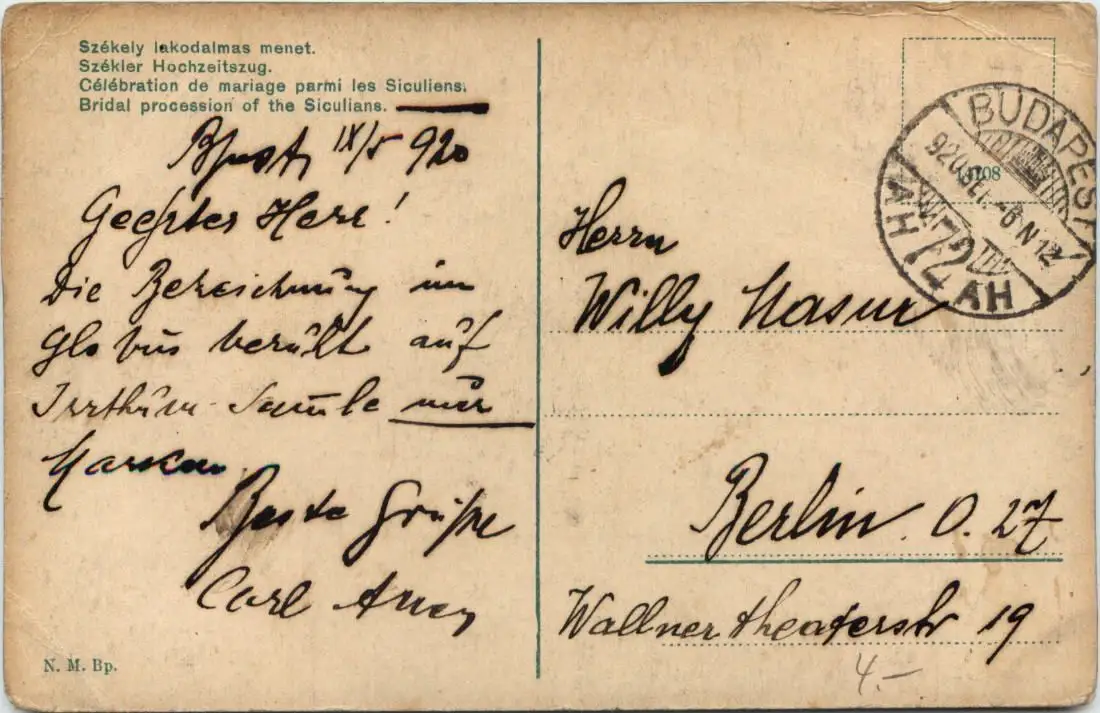 Székely lakodalmas menet.
Székler Hochzeitszug.
Célébration de mariage parmi les Siculiens.
Bridal procession of the Siculians.
Bpest, IX/5 920
Geehrter Herr!
Die Bezeichnung im
Globus beruht auf
Irrthum. Samle nur
Marken
Beste Grüße
Carl
N. M. Bp.
BUDAPEST
72
Herrn
Willy Masur
Berlin O. 27
Wallnertheaterstr 19
4.-